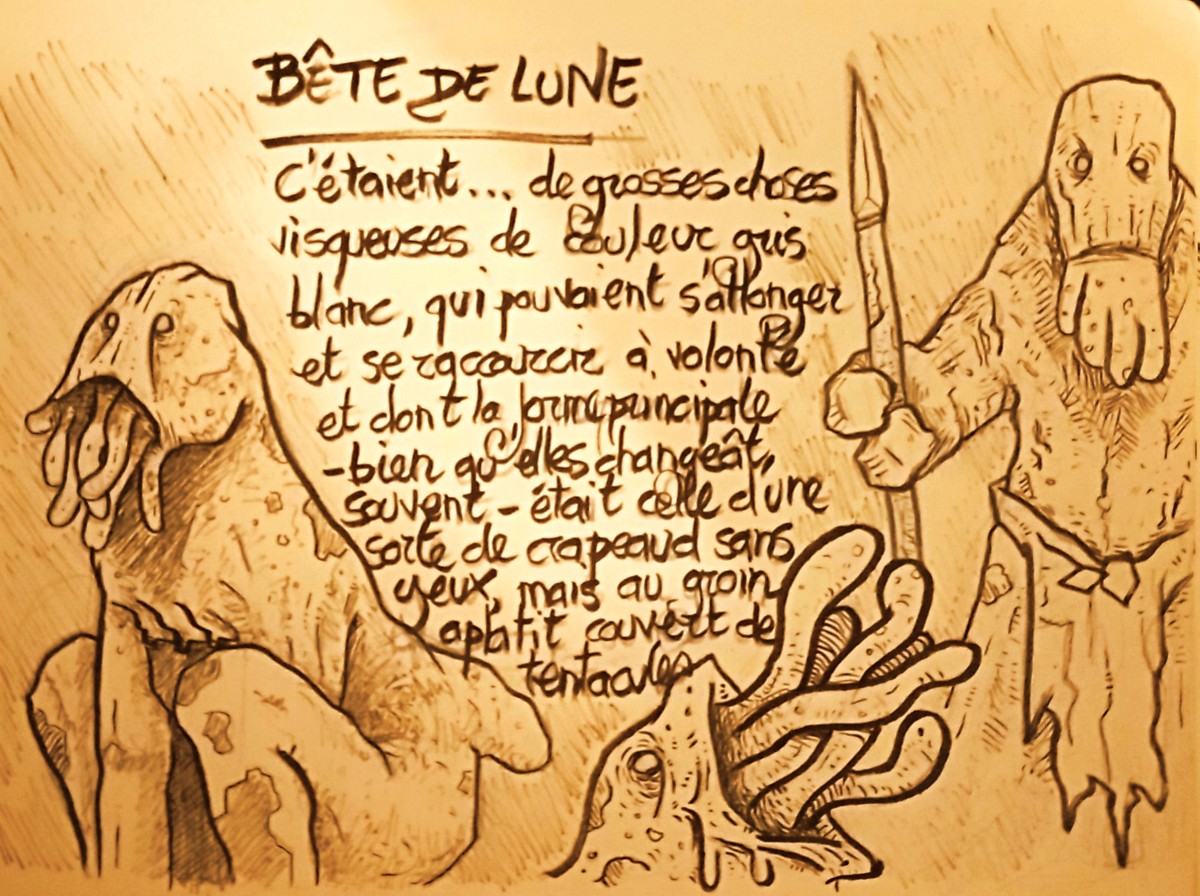 BÊTE DE LUNE
C'étaient... de grosses choses
visqueuses de couleur gris
blanc, qui pouvaient s'allonger
et se raccourcir à volonté
et dont la forme principale
- bien qu'elles changeât,
souvent - était celle d'une
sorte de crapeaud sans
yeux, mais au groin
aplatit couvert de
tentacules